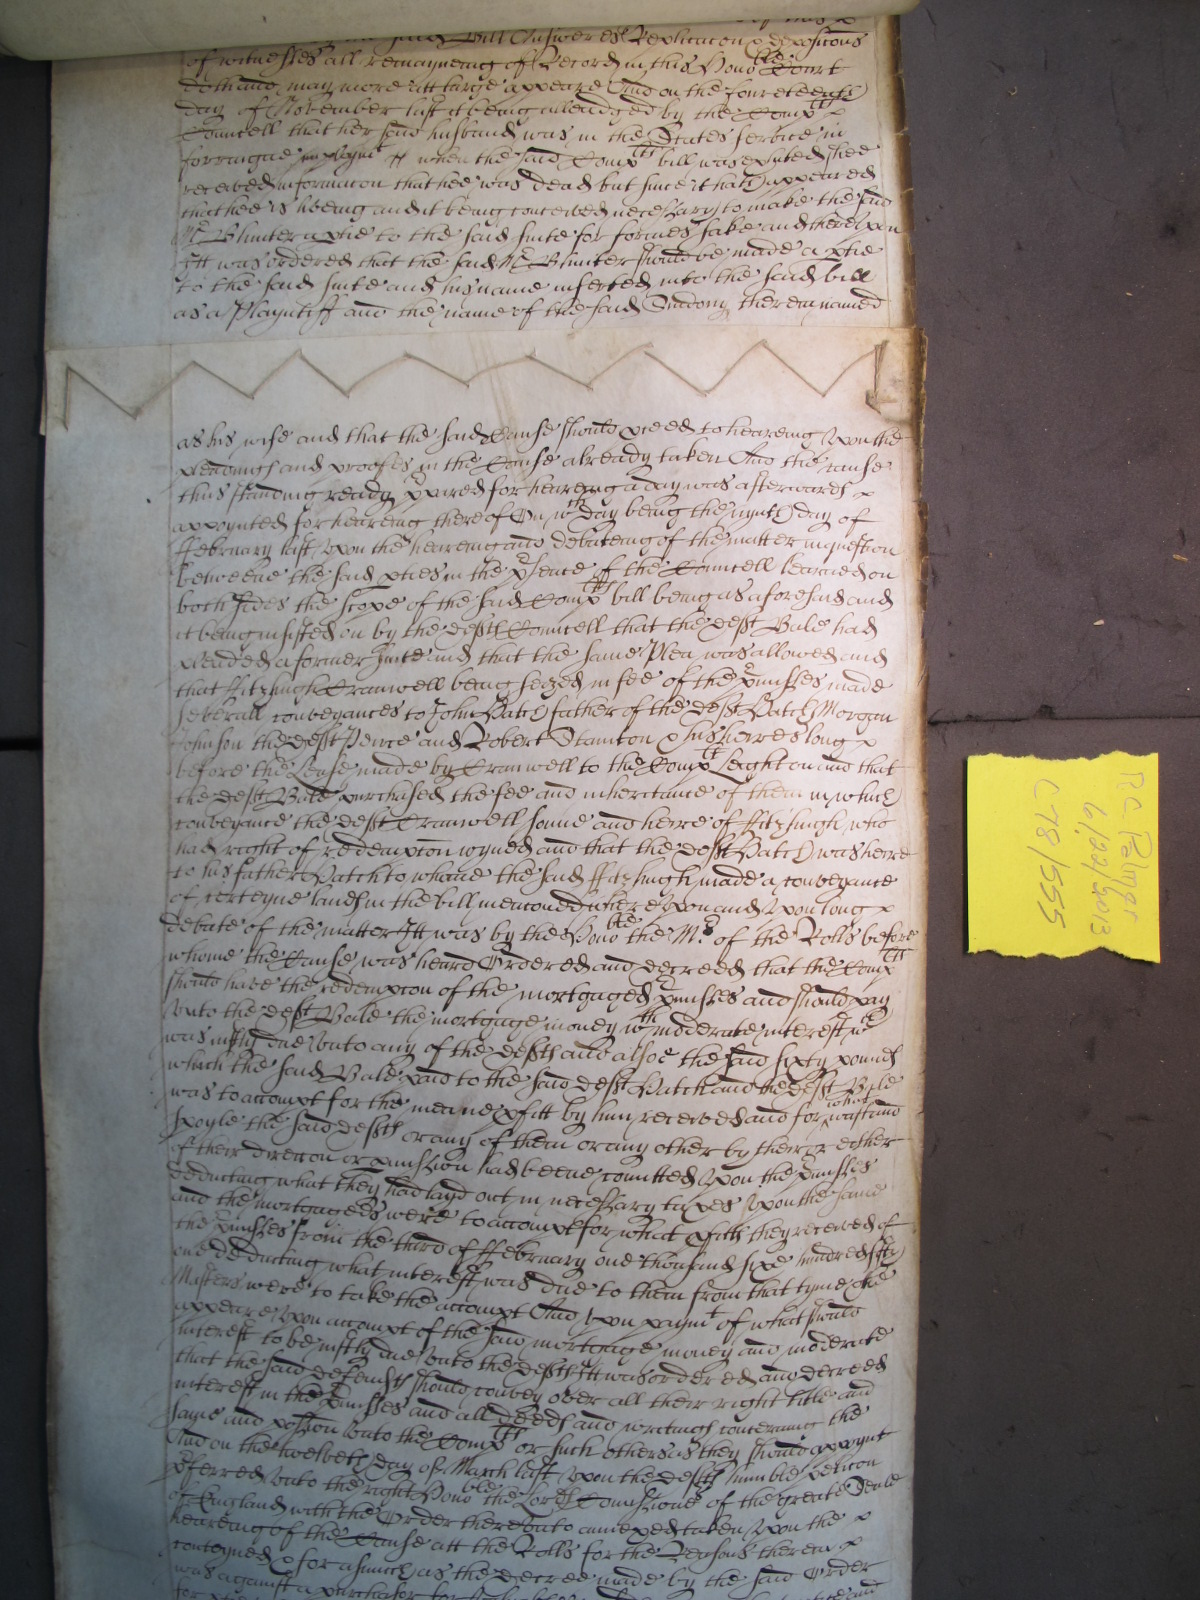 of this p
said Bill Answeres Replicacon & deposicons
of witnesses all remayneing of Record in this Honoble Court
doth and may more att large appeare And on the fourteenth
day of November last it being alleadged by the Compts
Councell that her said husband was in the States service in
forraigne imploymt & when the said Compts bill was exhibited shee
received informacon that hee was dead but since it hath appeared
that hee is liveing and it being conceived necessary to make the said
Mr Blunter a ptie to the said suite for formes sake and thereupon
Itt was ordered that the said Mr Blunter should be made a ptie
to the said suite and his name inserted into the said bill
as a Playntiff and the name of the said therein named
as his wife and that the said Cause should pceed to heareing upon the
pleadings and proofes in the Cause already taken And the cause
thus standing ready ppared for heareing a day was afterwards
appoynted for heareing thereof On wch day being the nynth day of
February last upon the heareing and debateing of the matter in question
betweene the said pties in the psence of the Councell learned on
both sides the scope of the said Compts bill being as aforesaid and
it being insisted on by the defts Councell that the deft Bale had
pleaded a former suite and that the same Plea was allowed and
that Fitzhugh Cranwell being seized in fee of the pmisses made
severall conveyances to John Hatch father of the deft Hatch Morgan
Johnson the deft Peirce and Robert Stanton & his heires long
before the Lease made by Cranwell to the Compt Leighton and that
the deft Bale purchased the fee and inheritance of them in which
conveyance the deft Cranwell sonne and heire of Fitzhugh who
had right of redempton ioyned and that the deft Hatch was heire
to his father Hatch to whome the said Fitzhugh made a conveyance
of certeyne lands in the bill menconed whereupon and upon long
debate of the matter Itt was by the Honoble the Mr of the Rolls before
whome the Cause was heard Ordered and decreed that the Compts
should have the redempcon of the mortgaged pmisses and should pay
unto the deft Bale the mortgage money wth moderate interest wch
was iustly due unto any of the defts and alsoe the said sixty pounds
which the said Bale paid to the said deft Hatch and the deft Bale
was to accompt for the meane pfitt by him received and for what wast and
spoyle the said defts or any of them or any other by their or either
of their direccon or pmission had beene comitted upon the pmisses
deducting what they had layd out in necessary taxes upon the same
and the mortgagees were to accompt for what pfitts they received of
the pmisses from the third of February one thousand sixe hundred fifty
one deducting what interest was due to them from that tyme the
Masters were to take the accompt And upon paymt of what should
appeare upon accompt of the said mortgage money and moderate
interest to be iustly due unto the defts Itt was ordered and decreed
that the said defendts should convey over all their right title and
interest in the pmisses and all deeds and writings concerning the
same and possion unto the Compts or such others as they should appoynt
And on the twelveth day of March last upon the defts humble peticon
pferred unto the right Honoble the Lords Comissioners of the greate Seale
of England with the Order thereunto annexed taken upon the
heareing of the Cause att the Rolls for the Reasons therein
conteyned & for asmuch as the decree made by the said Order
was against a purchasor
P.C. Palmer
6/22/2013
C78/555